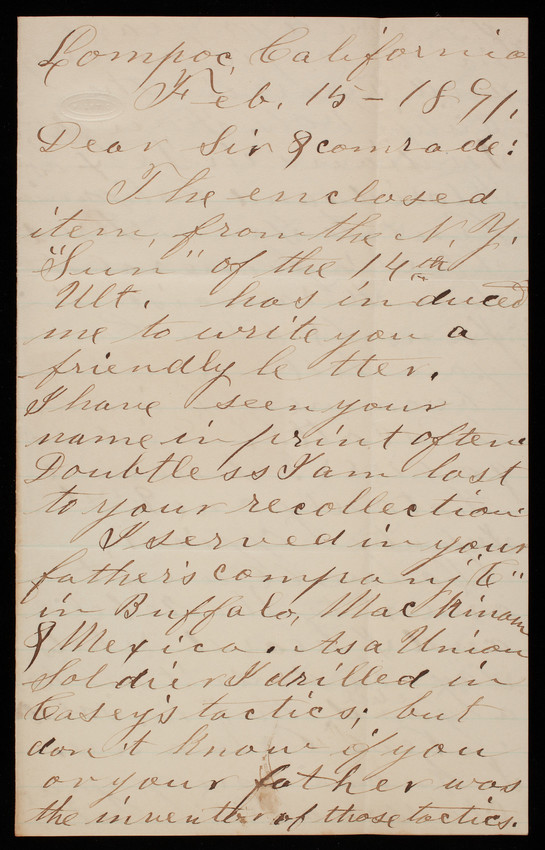 Lompoc, California
Feb. 15 - 1891.
Dear Sir & comrade:
The enclosed
item, from the N. Y.
"Sun" of the 14th
Ult. has induced
me to write you a
friendly letter.
I have seen your
name in print often.
Doubtless I am lost
to your recollection
I served in your
father's company "E"
in Buffalo, Mackinaw
& Mexico. As a Union
Soldier I drilled in
Casey's tactics; but
don't know if you
or your father was
the inventer of those tactics.